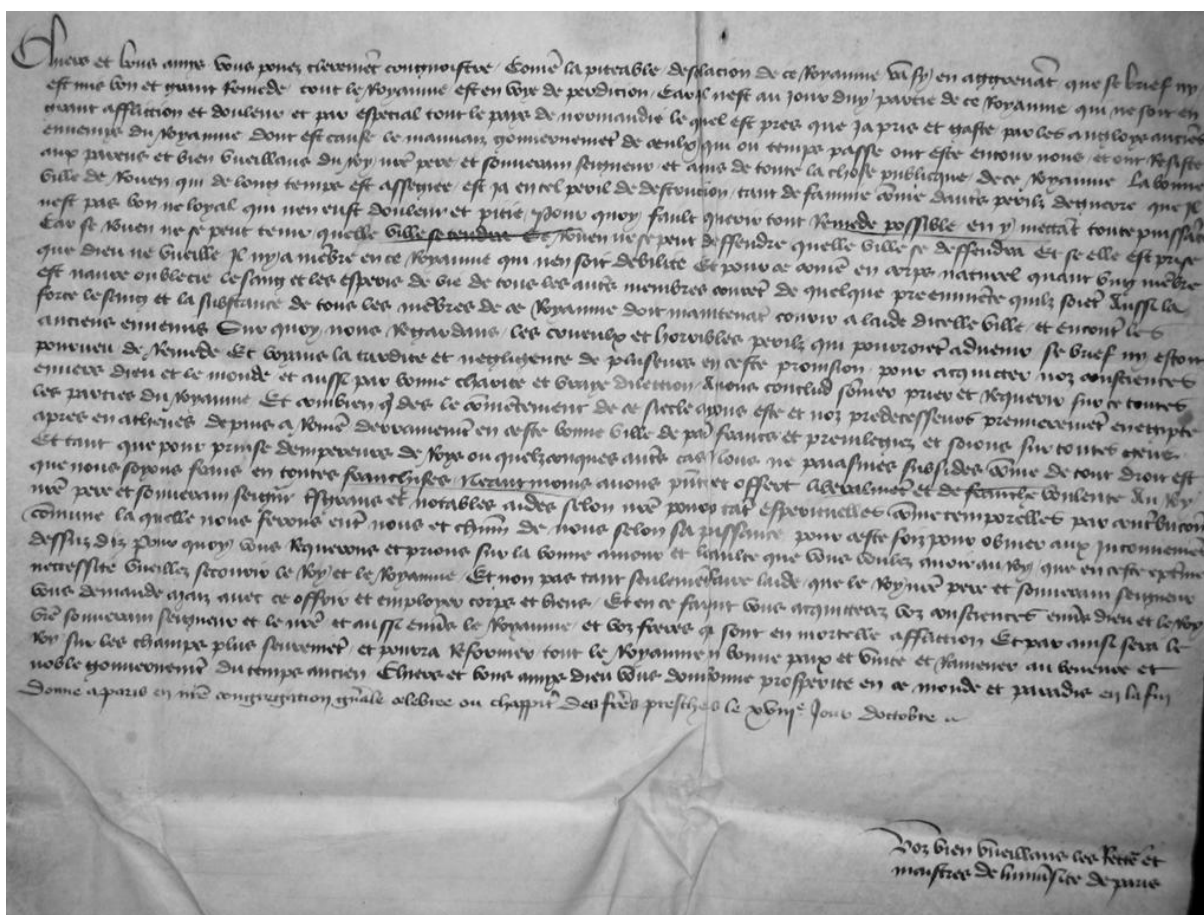 Chiers et bons amys vous povez cleremēt congnoistre Comē la piteable desolacion de ce Royaume va sy en aggrevāt que se brief ny
est mis bon et grant Remede tout le Royaume est en voye de perdicion Car il nest au jour duy partie de ce Royaume qui ne soit en
grant affliction et douleur et par especial tout le pays de normandie le quel est pres que ja pris et gaste par les angloys anciēs
ennemys du Royaume dont est cause le mauvaiz gouvernemēt de ceulx qui ou temps passe ont este entour nous et ont Resiste
aux parens et bien vueillans du roy nr̄e pere et souverain seigneur et amis de toute la chose publicque de ce Royaume La bonne
ville de Rouen qui de long temps est assegee est ja en tel peril de destrucion tant de famine cōme dautēs perilz de guerre que Il
nest pas bon ne loyal qui nen eust douleur et pitie Pour quoy fault querir tout Remede possible en y mettāt toute puissāce
Car se Rouen ne se peut tenir quelle ville se tendra Et se Rouen ne se peut deffendre quelle ville se deffendra Et se elle est prise
que dieu ne vueille Il ny a mēbre en ce Royaume qui nen soit debilite Et pour ce comē en corps naturel quant ung mēbre
est navre ou blecie le sang et les esperis de vie de tous les autēs membres courēt de quelque preeminēce quilz soiēt Aussi la
force le sang et la substance de tous les mēbres de ce Royaume doit maintenāt courir a laide dicelle ville et encontr̄ les
anciens ennemis Sur quoy nous Regardans les crueulx et horribles perilz qui pourroiēt advenir se brief ny estoit
pourveu de Remede Et voyans la tardite et negligence de pluseurs en ceste provision pour acquicter noz consciences
envers dieu et le monde et aussi par bonne charite et vraye dilection Avons conclud sōmer prier et Requerir sur ce toutes
les parties du Royaume Et combien q̄ des le cōmēcement de ce siecle ayons este et noz predecesseurs premieremēt en egipte
apres en athenes depuis a Rōme derrainemēt en ceste bonne ville de par̄ francs et previlegiez et soions sur toutes gens
Et tant que pour prinse dempereurs de Roys ou quelzconques autēs cas Nous ne paiasmes subsides cōme de tout droit est
que nous soyons frans en toutes franchises Neautmoins avons pn̄te et offert liberalmēt et de franche voulente Au Roy
nr̄e pere et souverain seigneur et notables aides selon nr̄e povre estat esperituelles cōme temporelles par contribucion
cōmune la quelle nous ferons entr̄ nous et chūn de nous selon sa puissance pour ceste foiz pour obvier aux Inconveniens
dessuz diz Pour quoy vous Requerons et prions sur la bonne amour et loiaulte que vous voulez avoir au Roy que en ceste extreme
necessite vueillez secourir le Roy et le Royaume Et non pas tant seulemēt faire laide que le Roy nr̄e pere et souverain seigneur
vous demande maiz avec ce offrir et employer corps et biens Et en ce faisant vous acquiterez voz consciences envers dieu et le Roy
vr̄e souverain seigneur et le nr̄e et aussi envers le Royaume et voz freres q̄ sont en mortelle affliction Et par ainsi sera le
Roy sur les champs plus seuremēt et pourra Reformer tout le Royaume en bonne paix et unite et Ramener au beneure et
noble gouvernemēt du temps ancien Chiers et bons amys dieu vous doint bonne prosperite en ce monde et paradis en la fin
Donne a paris en nr̄e congregation gn̄ale celebree ou chappitr̄ des frer̄s prescheurs le xviiie Jour doctobre
Voz bien vueillans les Rector et
maistres de luniv̄site de paris